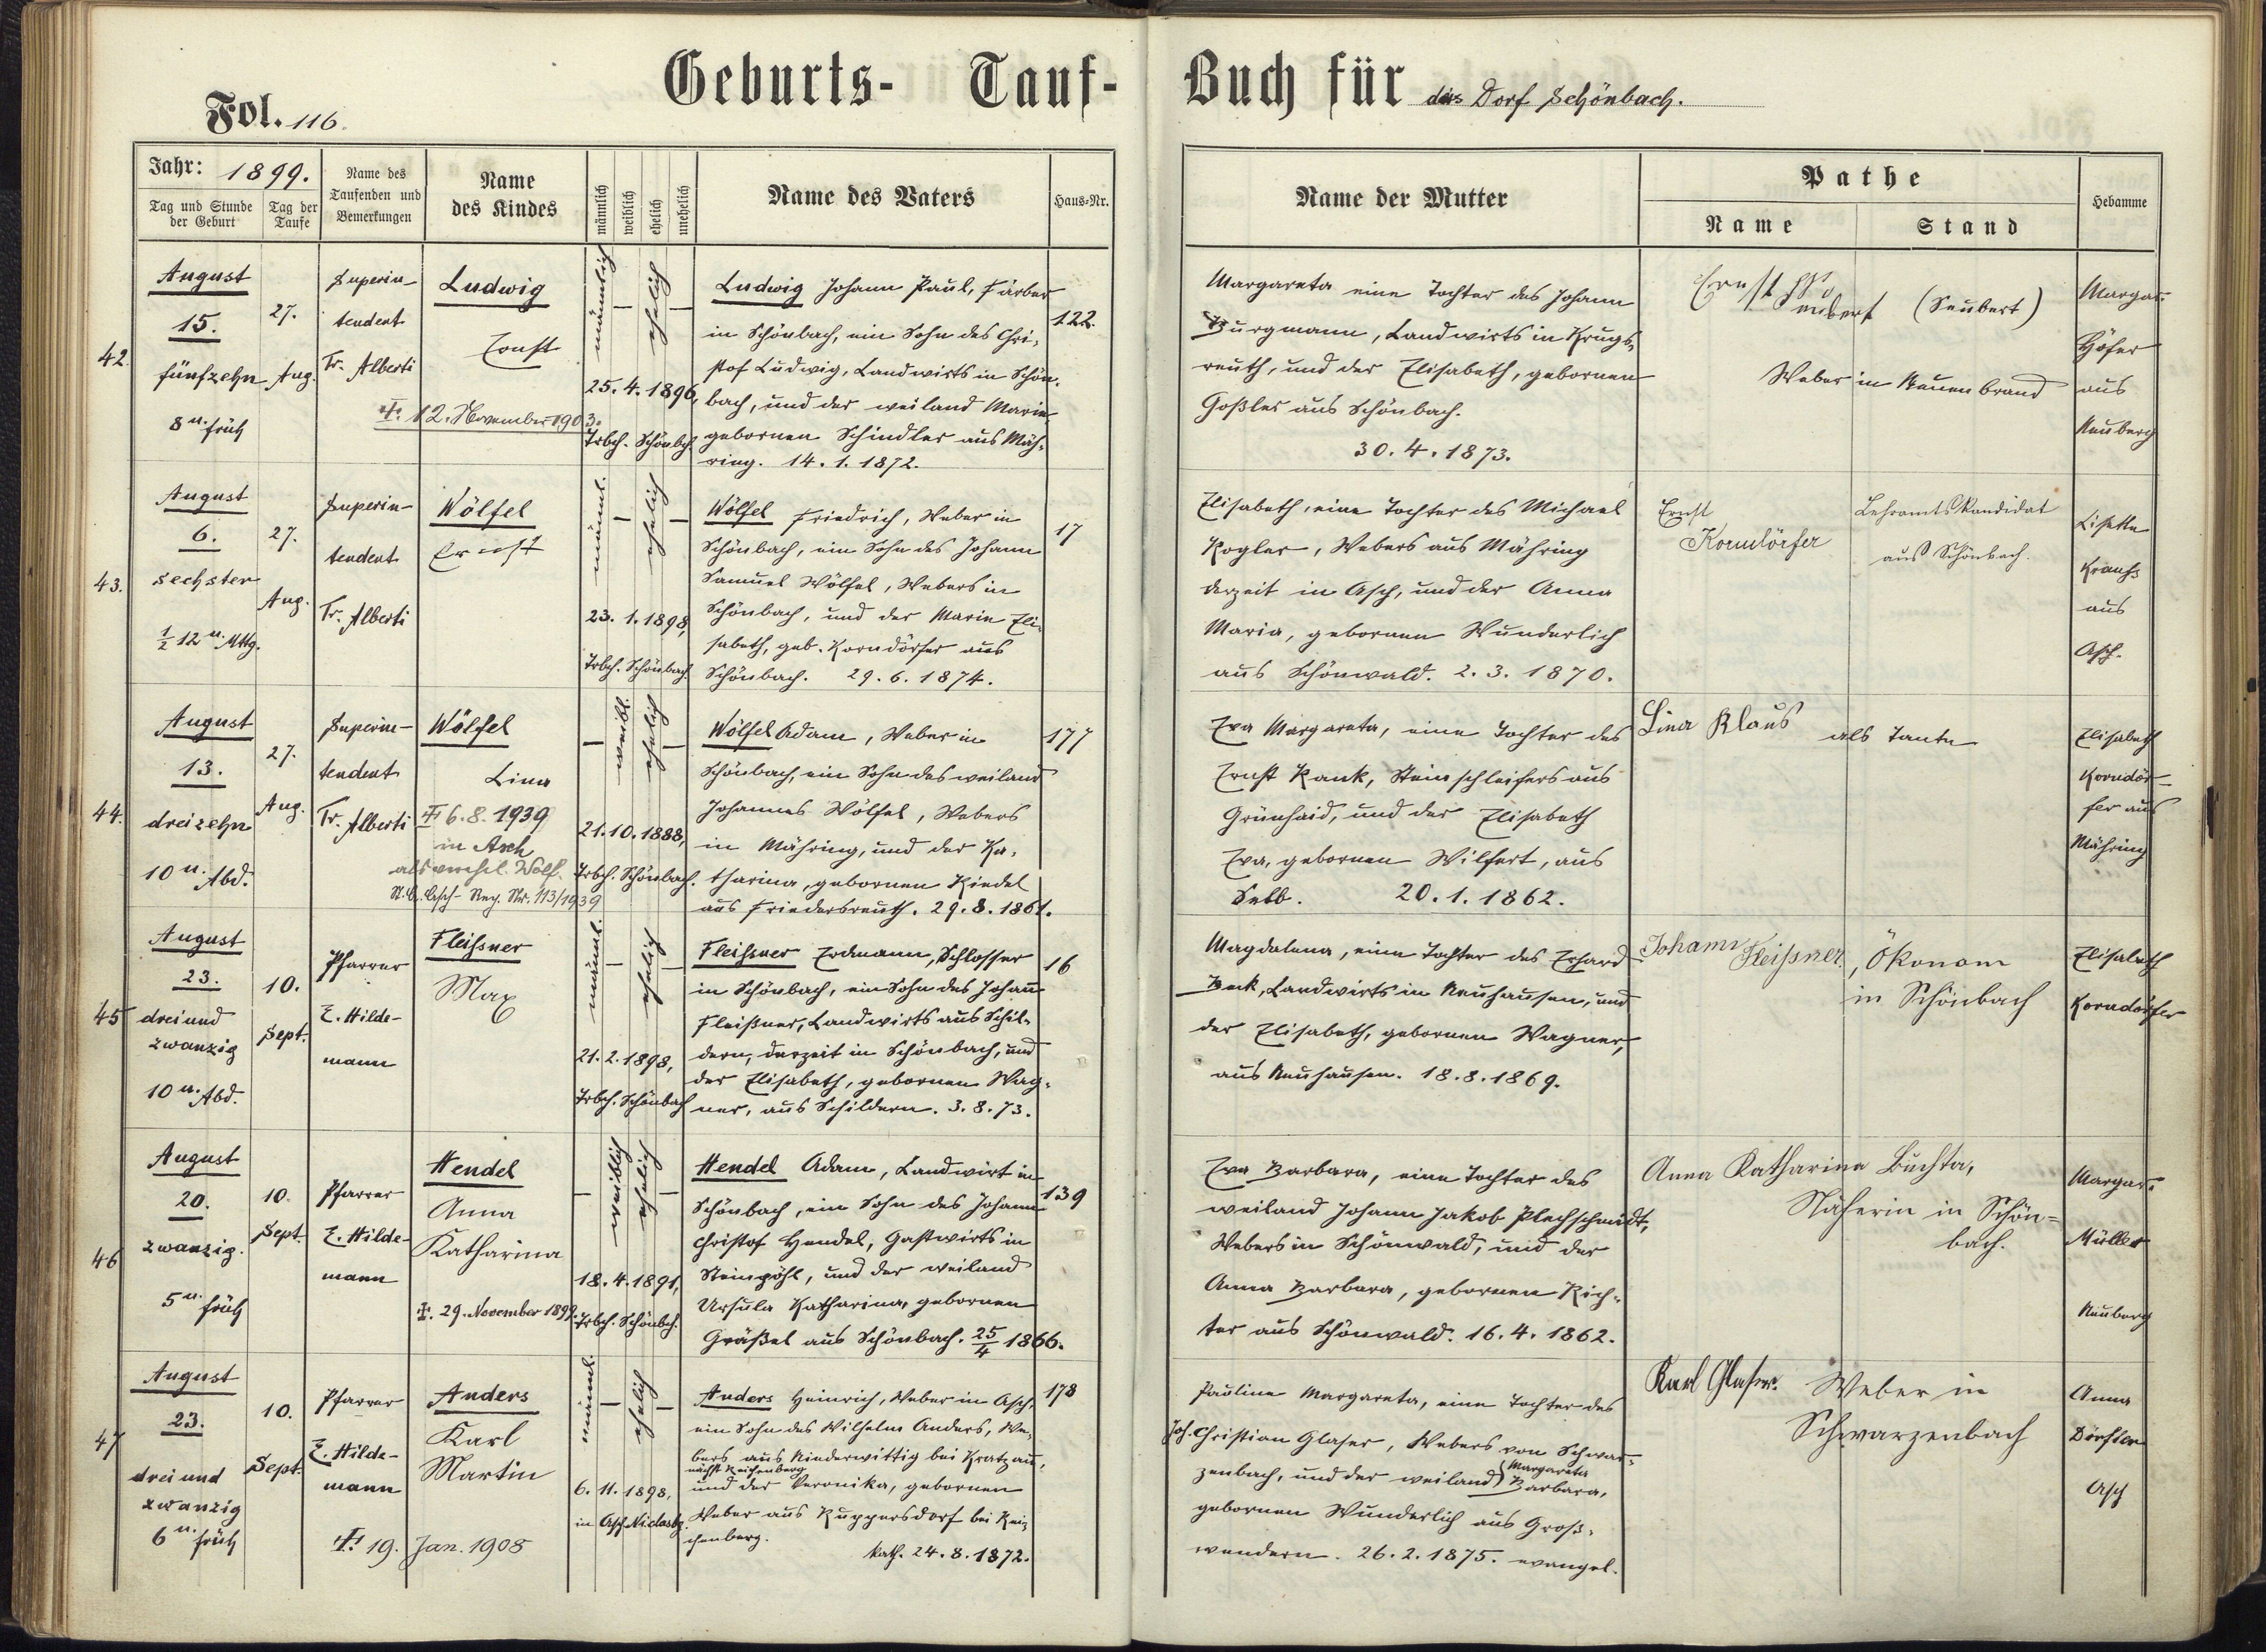 Geburts- Tauf-
Buch für das Dorf Schönbach.
Fol. 116.
Jahr: 1899.
Tag und Stunde der Geburt
Tag der Taufe
Name des Taufenden und Bemerkungen
Name des Kindes
männlich
weiblich
ehelich
unehelich
Name des Vaters
Haus-Nr.
Name der Mutter
Pathe
Name
Stand
Hebamme
42.
August
15.
fünfzehn
8 u. früh
27.
Aug.
Superin-
tendent
Tr. Alberti
Ludwig
Ernst
12. November 1903.
männlich
–
ehelich
–
25. 4. 1896,
Trbch. Schönbch.
Ludwig Johann Paul, Färber
in Schönbach, ein Sohn des Chri-
stof Ludwig, Landwirts in Schön-
bach, und der weiland Marie
gebornen Schindler aus Mäh-
ring. 14. 1. 1872.
122.
Margareta eine Tochter des Johann
Burgmann, Landwirts in Krugs-
reuth, und der Elisabeth, gebornen
Goßler aus Schönbach.
30. 4. 1873.
Ernst
(Seubert)
Weber in Neuenbrand
Margar.
Höfer
aus
Neuberg
43.
August
6.
sechster
½ 12 u. Mttg.
27.
Aug.
Superin-
tendent
Tr. Alberti
Wölfel
Ernst
männl.
–
ehelich
–
23. 1. 1898,
Trbch. Schönbach.
Wölfel Friedrich, Weber in
Schönbach, ein Sohn des Johann
Samuel Wölfel, Webers in
Schönbach, und der Marie Eli-
sabeth, geb. Korndörfer aus
Schönbach. 29. 6. 1874.
17
Elisabeth, eine Tochter des Michael
Kogler, Webers aus Mähring
derzeit in Asch, und der Anna
Maria, gebornen Wunderlich
aus Schönwald. 2. 3. 1870.
Ernst
Korndörfer
Lehramtskandidat
aus Schönbach.
Lisette
Krauß
aus
Asch.
44.
August
13.
dreizehn
10 u. Abd.
27.
Aug.
Superin-
tendent
Tr. Alberti
Wölfel
Lina
6. 8. 1939
in Asch
als verehel. Wolf.
St. A. Asch - Reg. Nr. 113/1939
–
weibl.
ehelich
–
21. 10. 1888,
Trbch. Schönbach.
Wölfel Adam, Weber in
Schönbach, ein Sohn des weiland
Johannes Wölfel, Webers
in Mähring, und der Ka-
tharina, gebornen Riedel
aus Friedersreuth. 29. 8. 1861.
177
Eva Margareta, eine Tochter des
Ernst Rank, Steinschleifers aus
Grünhaid, und der Elisabeth
Eva, gebornen Wilfert, aus
Selb. 20. 1. 1862.
Lina Klaus
als Tante
Elisabeth
Korndör-
fer aus
Mähring
45
August
23.
drei und
zwanzig
10 u. Abd.
10.
Sept.
Pfarrer
E. Hilde-
mann
Fleißner
Max
männl.
–
ehelich
–
21. 2. 1898,
Trbch. Schönbach
Fleißner Erdmann, Schlosser
in Schönbach, ein Sohn des Johann
Fleißner, Landwirts aus Schil-
dern, derzeit in Schönbach, und
der Elisabeth, gebornen Wag-
ner, aus Schildern. 3. 8. 73.
16
Magdalena, eine Tochter des Erhard
Beck, Landwirts in Neuhausen, und
der Elisabeth, gebornen Wagner,
aus Neuhausen. 18. 8. 1869.
Johann Fleißner,
Ökonom
in Schönbach
Elisabeth
Korndörfer
46
August
20.
zwanzig.
5 u. früh
10.
Sept.
Pfarrer
E. Hilde-
mann
Hendel
Anna
Katharina
29. November 1899.
–
weiblich
ehelich
–
18. 4. 1891,
Trbch. Schönbch.
Hendel Adam, Landwirt in
Schönbach, ein Sohn des Johann
Christof Hendel, Gastwirts in
Steinpöhl, und der weiland
Ursula Katharina, gebornen
Gräßel aus Schönbach. 25/4 1866.
139
Eva Barbara, eine Tochter des
weiland Johann Jakob Plechschmidt,
Webers in Schönwald, und der
Anna Barbara, gebornen Rich-
ter aus Schönwald. 16. 4. 1862.
Anna Katharina Buchta,
Näherin in Schön=
bach.
Margar.
Müller
Neuberg
47
August
23.
drei und
zwanzig
6 u. früh
10.
Sept.
Pfarrer
E. Hilde-
mann
Anders
Karl
Martin
19. Jan. 1908
männl.
–
ehelich
–
6. 11. 1898,
in Asch Niclasbg.
Anders Heinrich, Weber in Asch,
ein Sohn des Wilhelm Anders, We-
bers aus Niederwittig bei Kratzau,
nächst Reichenberg
und der Veronika, gebornen
Weber aus Ruppersdorf bei Rei-
chenberg.
kath. 24. 8. 1872.
178
Pauline Margareta, eine Tochter des
Joh. Christian Glaser, Webers von Schwar-
zenbach, und der weiland (Margareta
Barbara,
gebornen Wunderlich aus Groß-
wendern. 26. 2. 1875. evangel.
Karl Glaser.
Weber in
Schwarzenbach
Anna
Dörfler
Asch